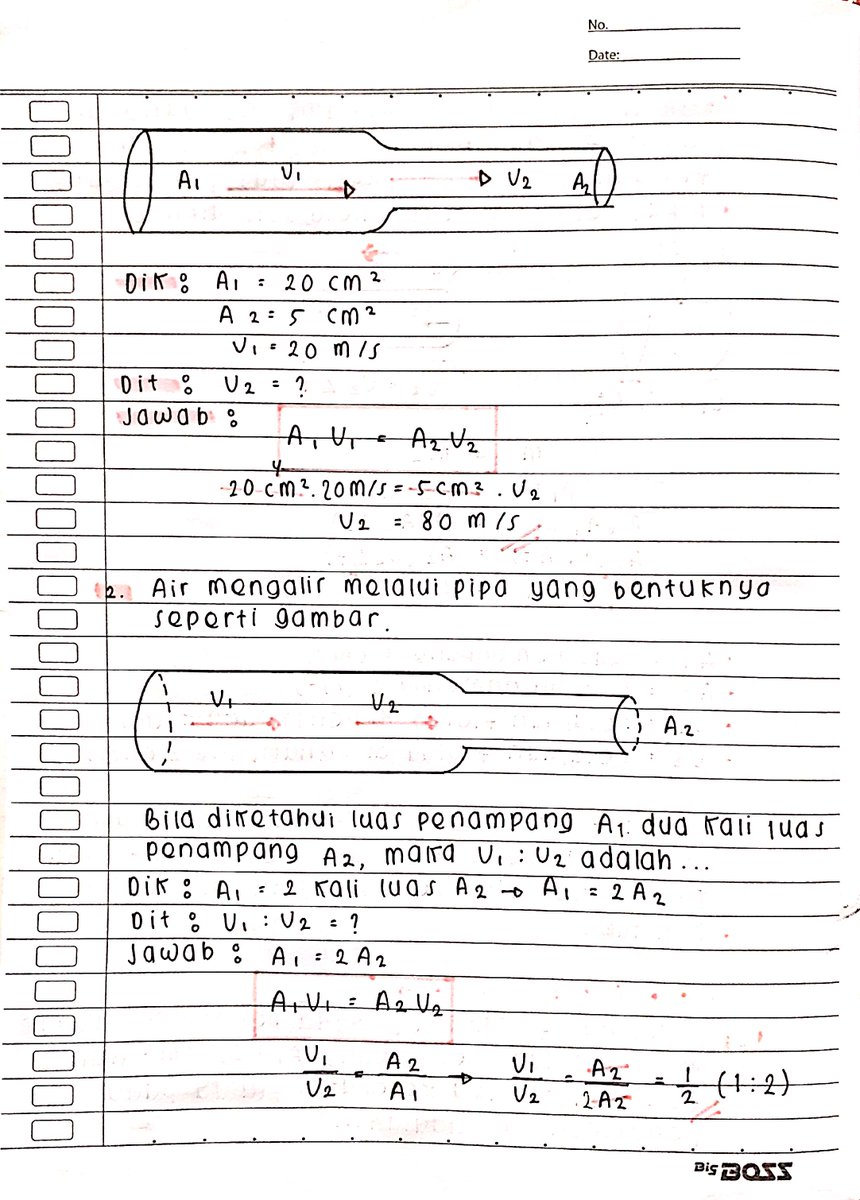 No.
Date:
A₁ V₁ V₂ A₂
Dik : A₁ = 20 cm²
A 2 = 5 cm²
V₁ = 20 m/s
Dit : V₂ = ?
Jawab :
A₁ V₁ = A₂ V₂
4
20 cm² . 20 m/s = 5 cm² . V₂
V₂ = 80 m/s
2. Air mengalir melalui pipa yang bentuknya
seperti gambar.
V₁ V₂ A₂
Bila diketahui luas penampang A₁ dua kali luas
penampang A₂, maka V₁ : V₂ adalah...
Dik : A₁ = 2 kali luas A₂ → A₁ = 2 A₂
Dit : V₁ : V₂ = ?
Jawab : A₁ = 2 A₂
A₁ V₁ = A₂ V₂
V₁/V₂ = A₂/A₁ → V₁/V₂ = A₂/2A₂ = 1/2 (1 : 2)
Big BOSS